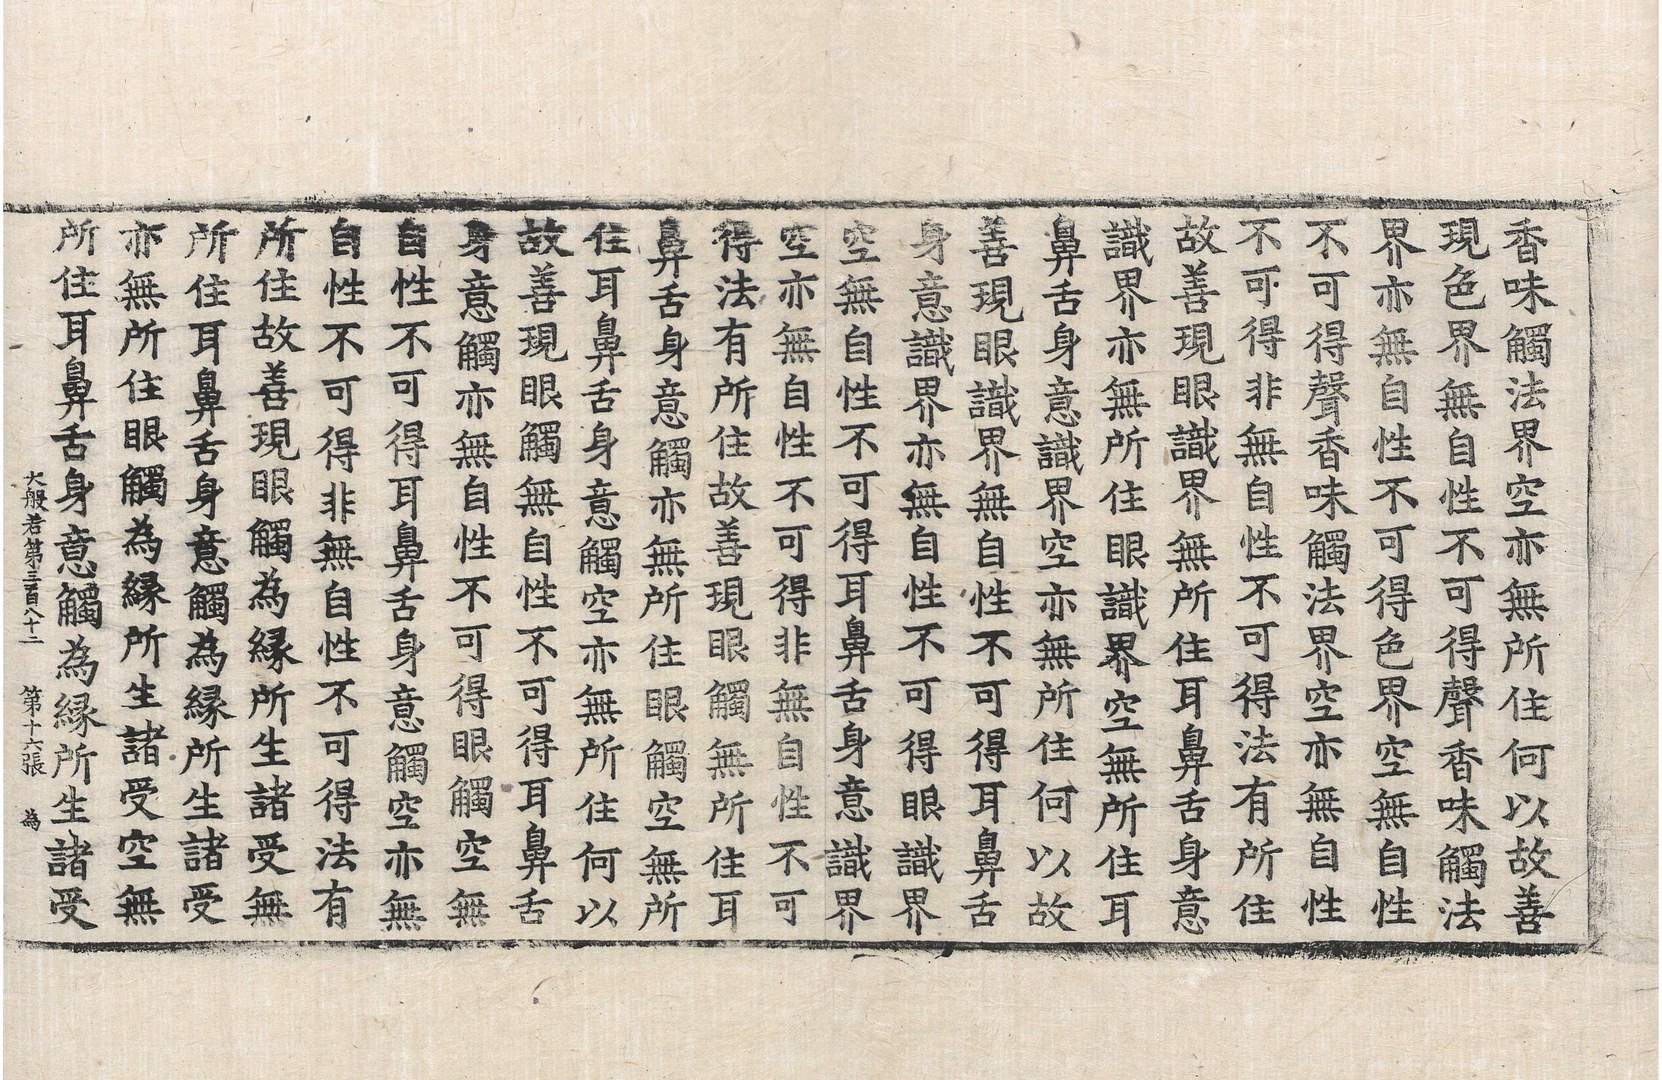 香味觸法界空亦無所住何以故善
現色界無自性不可得聲香味觸法
界亦無自性不可得色界空無自性
不可得聲香味觸法界空亦無自性
不可得非無自性不可得法有所住
故善現眼識界無所住耳鼻舌身意
識界亦無所住眼識界空無所住耳
鼻舌身意識界空亦無所住何以故
善現眼識界無自性不可得耳鼻舌
身意識界亦無自性不可得眼識界
空無自性不可得耳鼻舌身意識界
空亦無自性不可得非無自性不可
得法有所住故善現眼觸無所住耳
鼻舌身意觸亦無所住眼觸空無所
住耳鼻舌身意觸空亦無所住何以
故善現眼觸無自性不可得耳鼻舌
身意觸亦無自性不可得眼觸空無
自性不可得耳鼻舌身意觸空亦無
自性不可得非無自性不可得法有
所住故善現眼觸為縁所生諸受無
所住耳鼻舌身意觸為縁所生諸受
亦無所住眼觸為縁所生諸受空無
所住耳鼻舌身意觸為縁所生諸受
大般若第三百八十二 第十六張 為